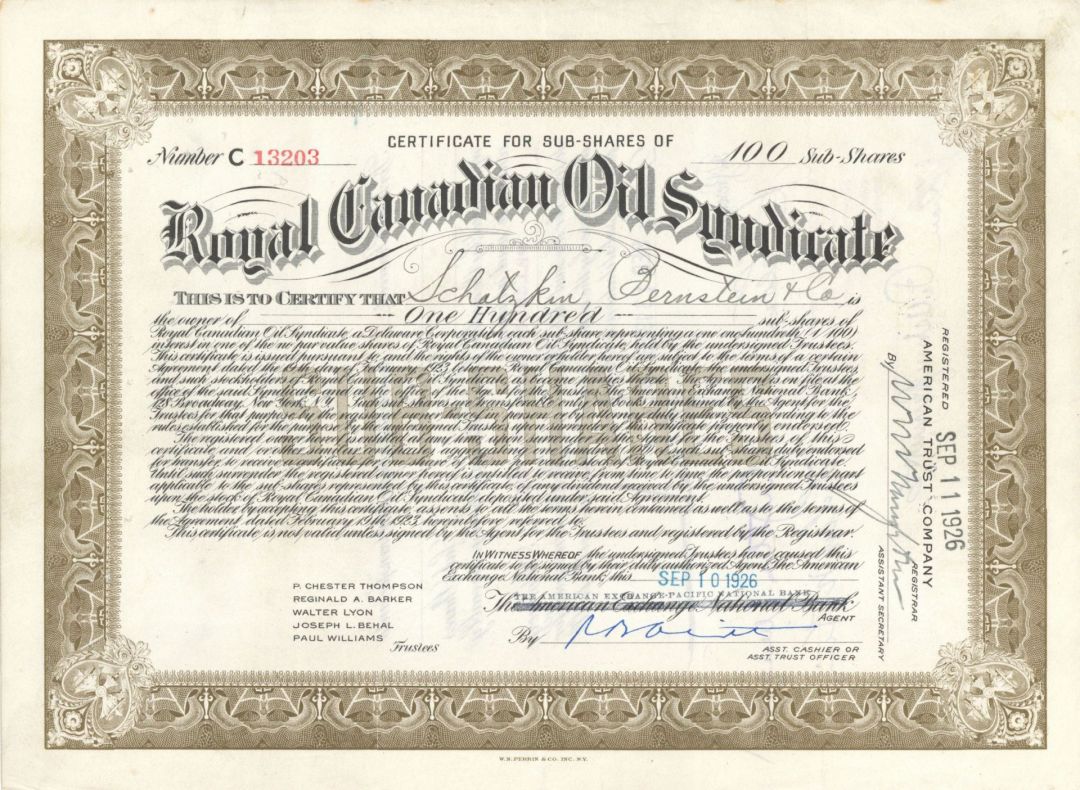 CERTIFICATE FOR SUB-SHARES OF
Number C 13203
100 Sub-Shares
Royal Canadian Oil Syndicate
THIS IS TO CERTIFY THAT Schatzkin Bernstein & Co is
the owner of One Hundred sub-shares of
Royal Canadian Oil Syndicate a Delaware Corporation, each sub-share representing a one one-hundredth (1/100)
interest in one of the no par value shares of Royal Canadian Oil Syndicate, held by the undersigned Trustees.
This certificate is issued pursuant to and the rights of the owner or holder hereof are subject to the terms of a certain
Agreement dated the 19th day of February 1923, between Royal Canadian Oil Syndicate, the undersigned Trustees
and such stockholders of Royal Canadian Oil Syndicate as become parties thereto, which Agreement is on file at the
office of the said Syndicate and at the office of the Agent for said Trustees, The American Exchange National Bank,
128 Broadway, New York, N.Y. Such sub-shares are transferable on the books maintained by the Agent for the
Trustees for that purpose by the registered owner hereof in person or by attorney duly authorized according to the
rules established for the purpose by the undersigned Trustees, upon surrender of this certificate properly endorsed.
The registered owner hereof is entitled at any time upon surrender to the Agent for the Trustees of this
certificate and/or other similar certificates aggregating one hundred (100) such sub-shares duly endorsed
for transfer, to receive a certificate for one share of the no par value stock of Royal Canadian Oil Syndicate.
Until such surrender the registered owner hereof is entitled to receive from time to time the proportionate amount
applicable to the sub-shares represented by this certificate, of any dividend received by the undersigned Trustees
upon the stock of Royal Canadian Oil Syndicate deposited under said Agreement.
The holder by accepting this certificate assents to all the terms herein contained, as well as to the terms of
the Agreement, dated February 19th, 1923, hereinbefore referred to.
This certificate is not valid unless signed by the Agent for the Trustees and registered by the Registrar.
SUB-SHARES
IN WITNESS WHEREOF the undersigned Trustees have caused this
certificate to be signed by their duly authorized Agent The American
Exchange National Bank, this SEP 10 1926
THE AMERICAN EXCHANGE-PACIFIC NATIONAL BANK
The American Exchange National Bank
AGENT
By
ASST. CASHIER OR
ASST. TRUST OFFICER
P. CHESTER THOMPSON
REGINALD A. BARKER
WALTER LYON
JOSEPH L. BEHAL
PAUL WILLIAMS
Trustees
REGISTERED SEP 11 1926
AMERICAN TRUST COMPANY
REGISTRAR
By
ASSISTANT SECRETARY
W.N. PERRIN & CO. INC. N.Y.